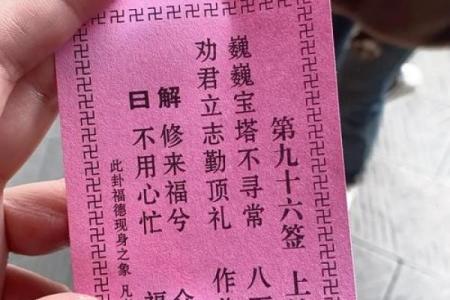 第九十六签 上
巍巍宝塔不寻常 八
劝君立志勤顶礼 作
解 修来福兮
曰 不用心忙 福
此卦福德现身之象 凡